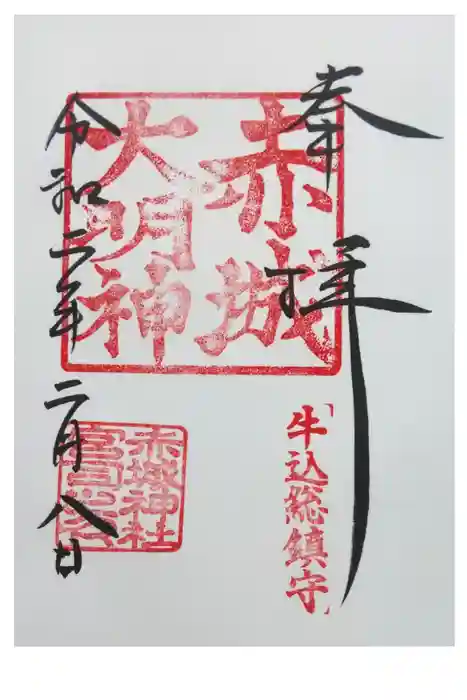 奉拝
赤城
大明神
「牛込総鎮守」
令和二年二月八日
赤城神社
宮司之印